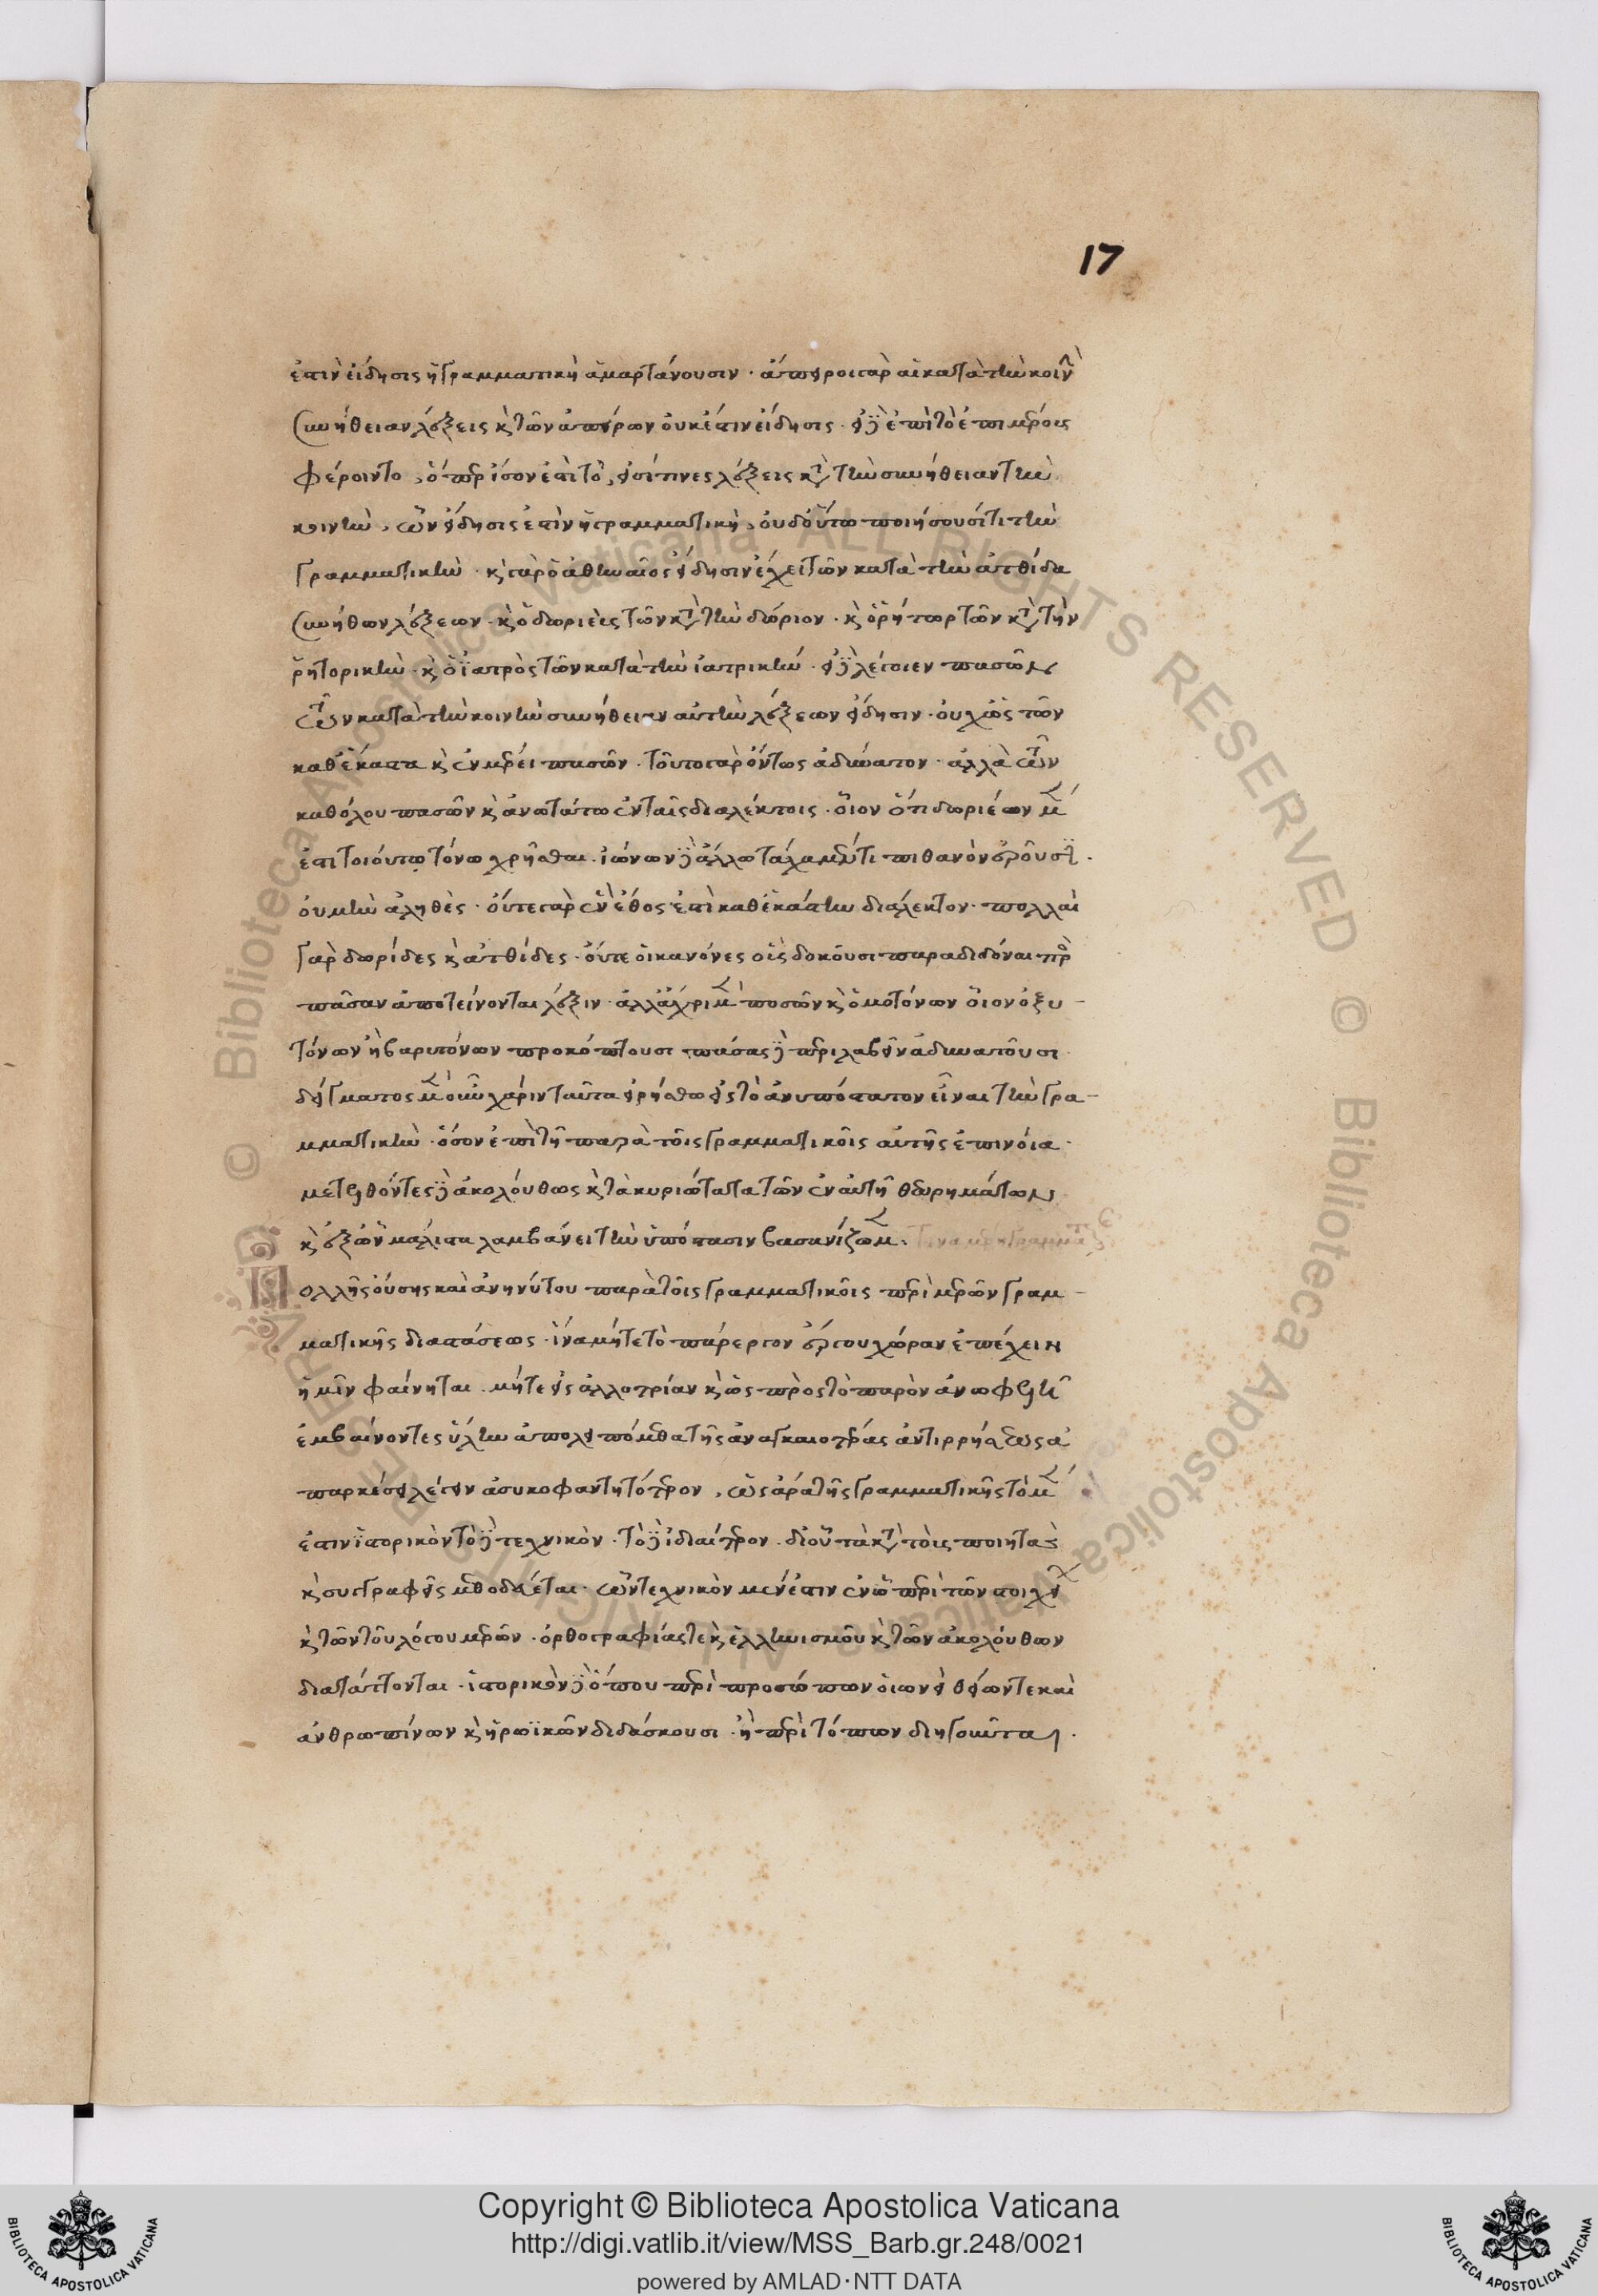 17
ἐστὶν εἴδησις ἡ γραμματικὴ ἁμαρτάνουσιν · ἄπειροι γὰρ αἱ κατὰ τὴν κοινὴν
συνήθειαν λέξεις καὶ τῶν ἀπείρων οὐκ ἔστιν εἴδησις · εἰ δὲ ἐπὶ τὸ ἐπὶ μέρους
φέροιντο, ὅπερ ἴσον ἐστὶ τὸ, εἰσί τινες λέξεις κατὰ τὴν συνήθειαν τὴν
κοινὴν, ὧν εἴδησις ἐστὶν ἡ γραμματικὴ, οὐδ οὕτω ποιήσουσί τι τὴν
γραμματικὴν · καὶ γὰρ ὁ ἀθηναῖος εἴδησιν ἔχει τῶν κατὰ τὴν ἀτθίδα
συνήθων λέξεων · καὶ ὁ δωριεὺς τῶν κατὰ τὴν δώριον · καὶ ὁ ῥήτωρ τῶν κατὰ τὴν
ῥητορικὴν · καὶ ὁ ἰατρὸς τῶν κατὰ τὴν ἰατρικήν · εἰ δὲ λέγοιεν πασῶν
τῶν κατὰ τὴν κοινὴν συνήθειαν αὐτὴν λέξεων εἴδησιν · οὐχ ὡς τῶν
καθ ἕκαστα καὶ ἐν μέρει πασῶν · τοῦτο γὰρ ὄντως ἀδύνατον · ἀλλὰ τῶν
καθόλου πασῶν καὶ ἀνωτάτω ἐν ταῖς διαλέκτοις · οἷον ὅτι δωριέων μέν
ἐστι τοιούτῳ τόνῳ χρῆσθαι · ἰώνων δὲ ἄλλῳ τάχα μέν τι πιθανὸν ἐροῦσι ·
οὐ μὴν ἀληθὲς · οὔτε γὰρ ἓν ἔθος ἐστὶ καθ ἑκάστην διάλεκτον · πολλαὶ
γὰρ δωρίδες καὶ ἀτθίδες · οὔτε οἱ κανόνες οὓς δοκοῦσι παραδιδόναι πρὸς
πᾶσαν ἀποτείνονται λέξιν · ἀλλ ἄχρι μὲν ποσῶν καὶ ὁμοτόνων οἷον ὀξυ-
τόνων ἢ βαρυτόνων προκόπτουσι πάσας δὲ περιλαβεῖν ἀδυνατοῦσι
δείγματος μὲν οὖν χάριν ταῦτα εἰρήσθω εἰς τὸ ἀνυπόστατον εἶναι τὴν γρα-
μματικὴν · ὅσον ἐπὶ τῇ παρὰ τοῖς γραμματικοῖς αὐτῆς ἐπινοίᾳ ·
μετελθόντες δὲ ἀκολούθως καὶ τὰ κυριώτατα τῶν ἐν αὐτῇ θεωρημάτων
καὶ ἐξ ὧν μάλιστα λαμβάνει τὴν ὑπόστασιν βασανίζωμεν ·
Πολλῆς οὔσης καὶ ἀνηνύτου παρὰ τοῖς γραμματικοῖς περὶ μερῶν γραμ-
ματικῆς διαστάσεως · ἵνα μήτε τὸ πάρεργον ἔργου χώραν ἐπέχειν
ἡμῖν φαίνηται · μήτε εἰς ἀλλοτρίαν καὶ ὡς πρὸς τὸ παρὸν ἀνωφελῆ
ἐμβαίνοντες ὕλην ἀπολειπώμεθα τῆς ἀναγκαιοτέρας ἀντιρρήσεως ἀ
παρκέσει λέγειν ἀσυκοφαντητότερον, ὡς ἄρα τῆς γραμματικῆς τὸ μέν
ἐστιν ἱστορικὸν τὸ δὲ τεχνικὸν · τὸ δὲ ἰδιαίτερον · δι οὗ τὰ κατὰ τοὺς ποιητὰς
καὶ συγγραφεῖς μεθοδεύεται · ὧν τεχνικὸν μέν ἐστιν ἐν ᾧ περὶ τῶν στοιχείων
καὶ τῶν τοῦ λόγου μερῶν · ὀρθογραφίας τε καὶ ἑλληνισμοῦ καὶ τῶν ἀκολούθων
διατάττονται · ἱστορικὸν δὲ ὅπου περὶ προσώπων οἱονεὶ θείων τε καὶ
ἀνθρωπίνων καὶ ἡρωϊκῶν διδάσκουσι · ἢ περὶ τόπων διηγοῦνται ·
© Biblioteca Apostolica Vaticana ALL RIGHTS RESERVED
Copyright © Biblioteca Apostolica Vaticana
http://digi.vatlib.it/view/MSS_Barb.gr.248/0021
powered by AMLAD·NTT DATA
BIBLIOTECA APOSTOLICA VATICANA
BIBLIOTECA APOSTOLICA VATICANA